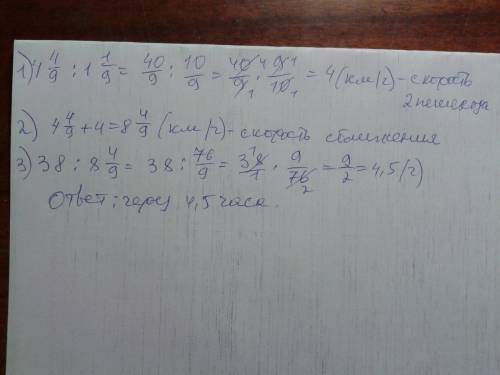 1) 4 4/9 : 1 1/9 = 40/9 : 10/9 = 40/9 · 9/10 = 4 (км/ч) - скорость
2 пешехода
2) 4 4/9 + 4 = 8 4/9 (км/ч) - скорость сближения
3) 38 : 8 4/9 = 38 : 76/9 = 38/1 · 9/76 = 9/2 = 4,5 (ч)
Ответ: через 4,5 часа.